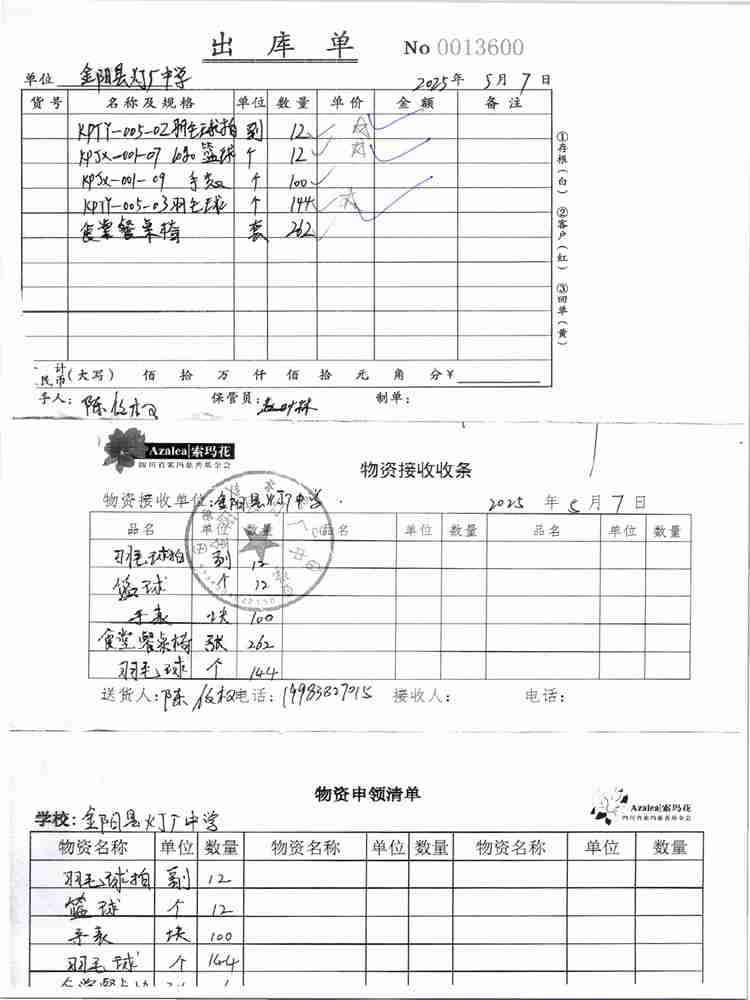 出库单 No 0013600
单位 金阳县灯厂中学 2025年 5月 7日
货号 名称及规格 单位 数量 单价 金额 备注
KPTY-005-02羽毛球拍 副 12
KPJX-001-07 篮球 个 12
KPJX-001-09 手表 个 100
KPTY-005-03羽毛球 个 144
食堂餐桌椅 套 262
①存根(白) ②客户(红) ③回单(黄)
计
民币(大写) 佰 拾 万 仟 佰 拾 元 角 分¥
手人: 保管员: 制单:
Azalea|索玛花
四川省索玛慈善基金会
物资接收收条
物资接收单位:金阳县灯厂中学. 2025 年 5月 7日
品名 单位 数量 品名 单位 数量 品名 单位 数量
羽毛球拍 副 12
篮球 个 12
手表 块 100
食堂餐桌椅 张 262
羽毛球 个 144
送货人: 电话: 14983827015 接收人: 电话:
物资申领清单
Azalea|索玛花
四川省索玛慈善基金会
学校: 金阳县灯厂中学
物资名称 单位 数量 物资名称 单位 数量 物资名称 单位 数量
羽毛球拍 副 12
篮球 个 12
手表 块 100
羽毛球 个 144